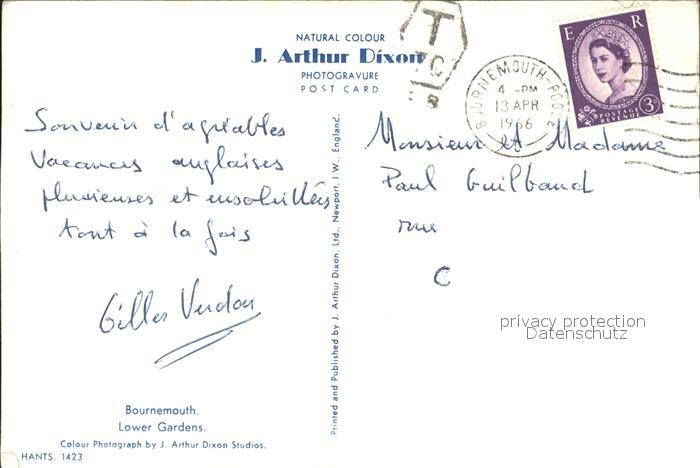 NATURAL COLOUR
J. Arthur Dixon
PHOTOGRAVURE
POST CARD
T
C
BOURNEMOUTH-POOLE
4 - PM
13 APR
1966
E R
3D
POSTAGE
REVENUE
Souvenir d'agréables
Vacances anglaises
pluvieuses et ensoleillées
tout à la fois
Gilles Verdon
Monsieur et Madame
Paul Guilbaud
rue
C
privacy protection
Datenschutz
Printed and Published by J. Arthur Dixon, Ltd., Newport, I.W., England.
Bournemouth.
Lower Gardens.
Colour Photograph by J. Arthur Dixon Studios.
HANTS. 1423